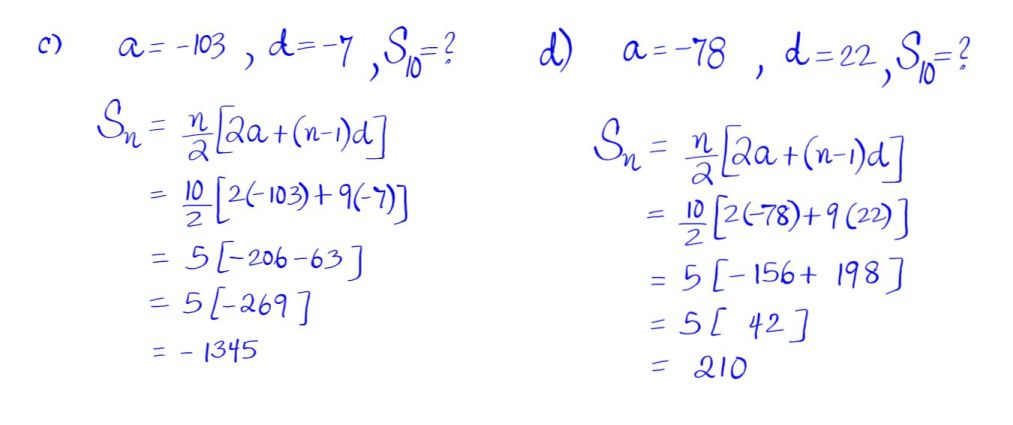 c) a = -103 , d = -7 , S₁₀ = ?
Sₙ = n/2 [2a + (n-1)d]
= 10/2 [2(-103) + 9(-7)]
= 5 [-206 - 63]
= 5 [-269]
= -1345
d) a = -78 , d = 22 , S₁₀ = ?
Sₙ = n/2 [2a + (n-1)d]
= 10/2 [2(-78) + 9(22)]
= 5 [-156 + 198]
= 5 [ 42 ]
= 210